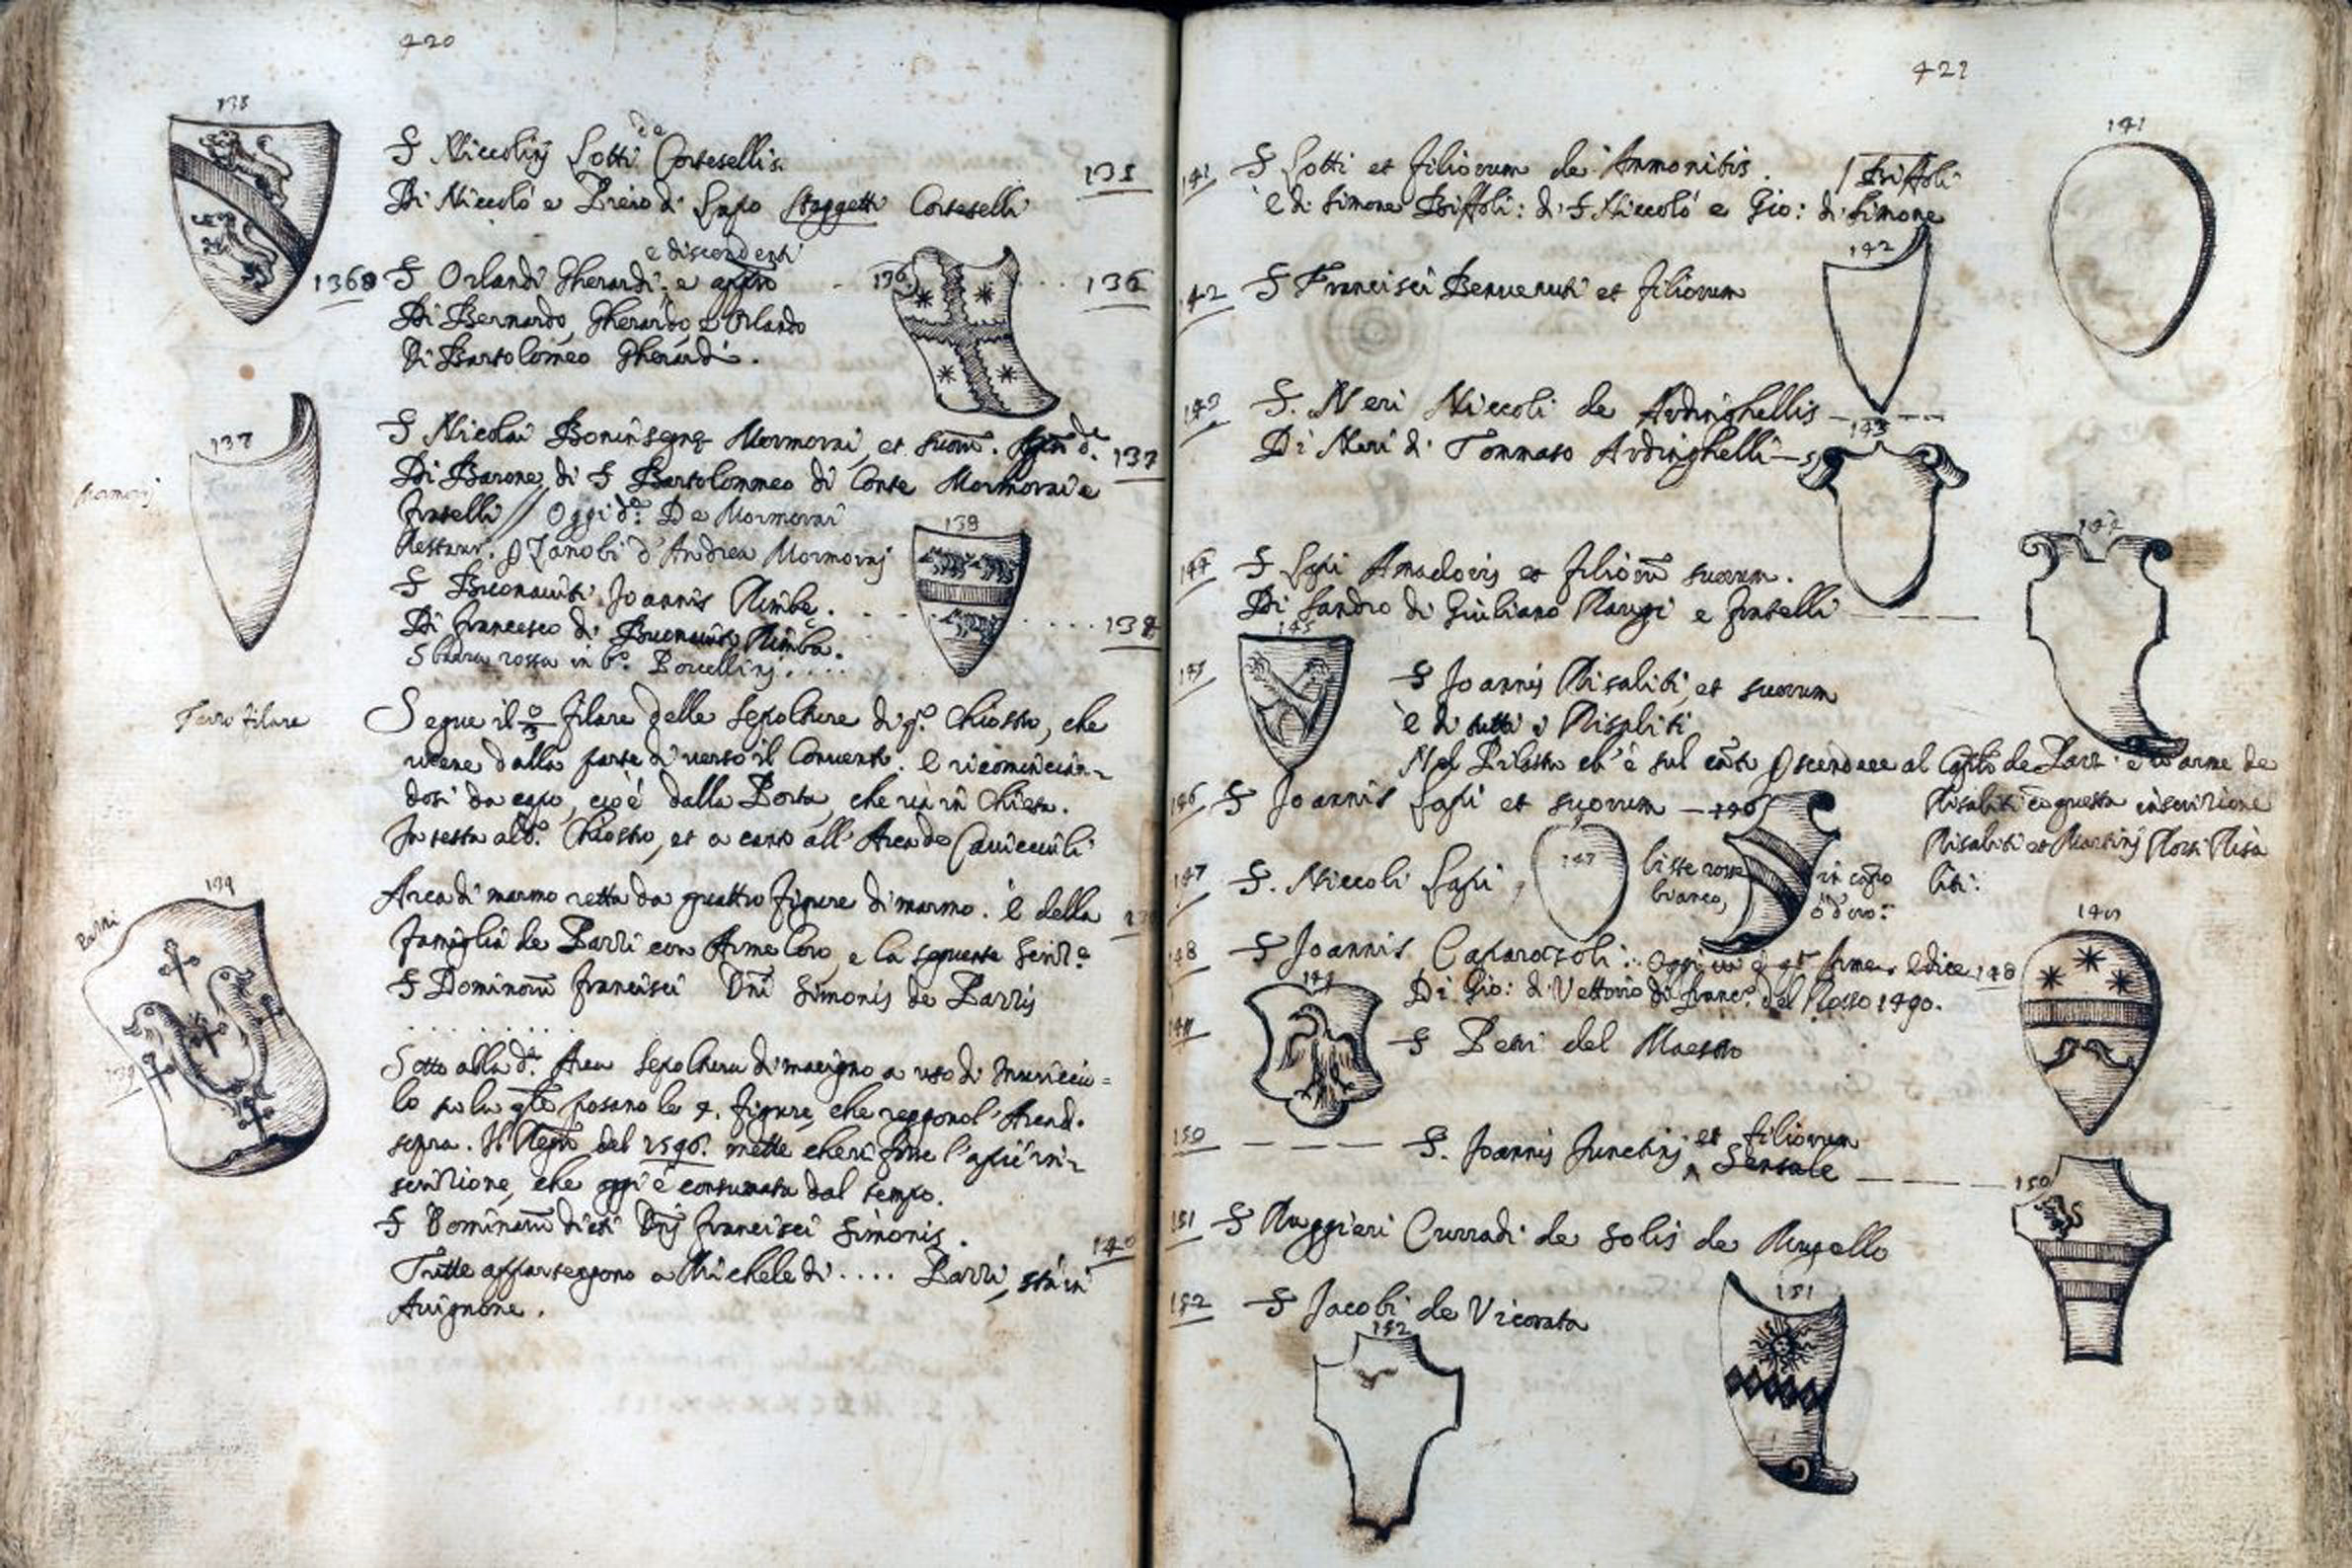 420
135
S Niccolij Lotti de Cortesellis.
Di Niccolò e Piero di Lapo Corteselli
135
e discendenti
1368 S Orlandi Gherardi, e
136
136
Di Bernardo, Gherardo e Orlando
Di Bartolomeo Gherardi.
137
S Nicolai Boninsegne Mormorai, et suor̄.
137
Di Barone di S Bartolommeo di Conte Mormorai e
fratelli // Oggi d.º De Mormorai
Restaur. Zanobi d'Andrea Mormoraj
138
S Buonauiti Joannis Rimbe.
Di Francesco di Buonauito Rimba.
138
Sbarra rossa in b.º Porcellinj....
Terzo filare
Segue il 3º filare delle Sepolture di q.º Chiostro, che
uiene dalla parte di uerso il Conuento. E ricomincian-
dosi da capo, cioè dalla Porta, che uà in Chiesa.
In testa al d.º Chiostro, et a canto all'Arca de Cauicciuli
139
Bardi
Arca di marmo retta da quattro figure di marmo. è della
famiglia de Pazzi con Arme loro, e la seguente Scriz.e
S Dominor̄ Francisci Dn̄i Simonis de Pazzis
Sotto alla d.ª Arca Sepoltura di macigno a uso di muricciu-
lo su la qle posano le 4. figure, che reggono l'Arca di
sopra. Il Regro del 1596. mette che ui fusse l'apiè in-
scrizione, che oggi è consumata dal tempo.
S Dominor̄ dicti Dn̄j Francisci Simonis.
140
Tutte appartengono a Michele di .... Pazzi, stà in
Auignone.
421
141
141 S Lotti et filiorum de Ammonitis.
è di Simone Biffoli: di S Niccolò e Gio: di Simone
142
142 S Francisci Benuenuti et filiorum
143 S. Neri Niccoli de Ardinghellis
143
Di Neri di Tommaso Ardinghelli
144
144 S Lapi Amadoris et filior̄ suorum.
Di Sandro di Giuliano Raugi e fratelli
145
145 S Joannis Risaliti, et suorum
è di tutti i Risaliti
Nel Pilastro ch'è sul canto p scendere al Cap.lo de Pazzi è l'arme de
Risaliti cō questa inscrizione
Risaliti et Martinj Rossi Risa
liti:
146 S Joannis Lapi et suorum 146
147 S. Niccoli Lapi, 147
liste rosse
bianco,
in capo
ò d'oro:
148 S Joannis Caparozoli: Oggi ui è qt' Arme, e dice 148
Di Gio: di Vettorio di Franc.º del Rosso 1490.
149
149 S Petri del Maestro
150 S. Joannis Junctinj et filiorum
Sensale
150
151 S Ruggieri Curradi de Solis de Mugello
151
152 S Jacobi de Vicorata
152